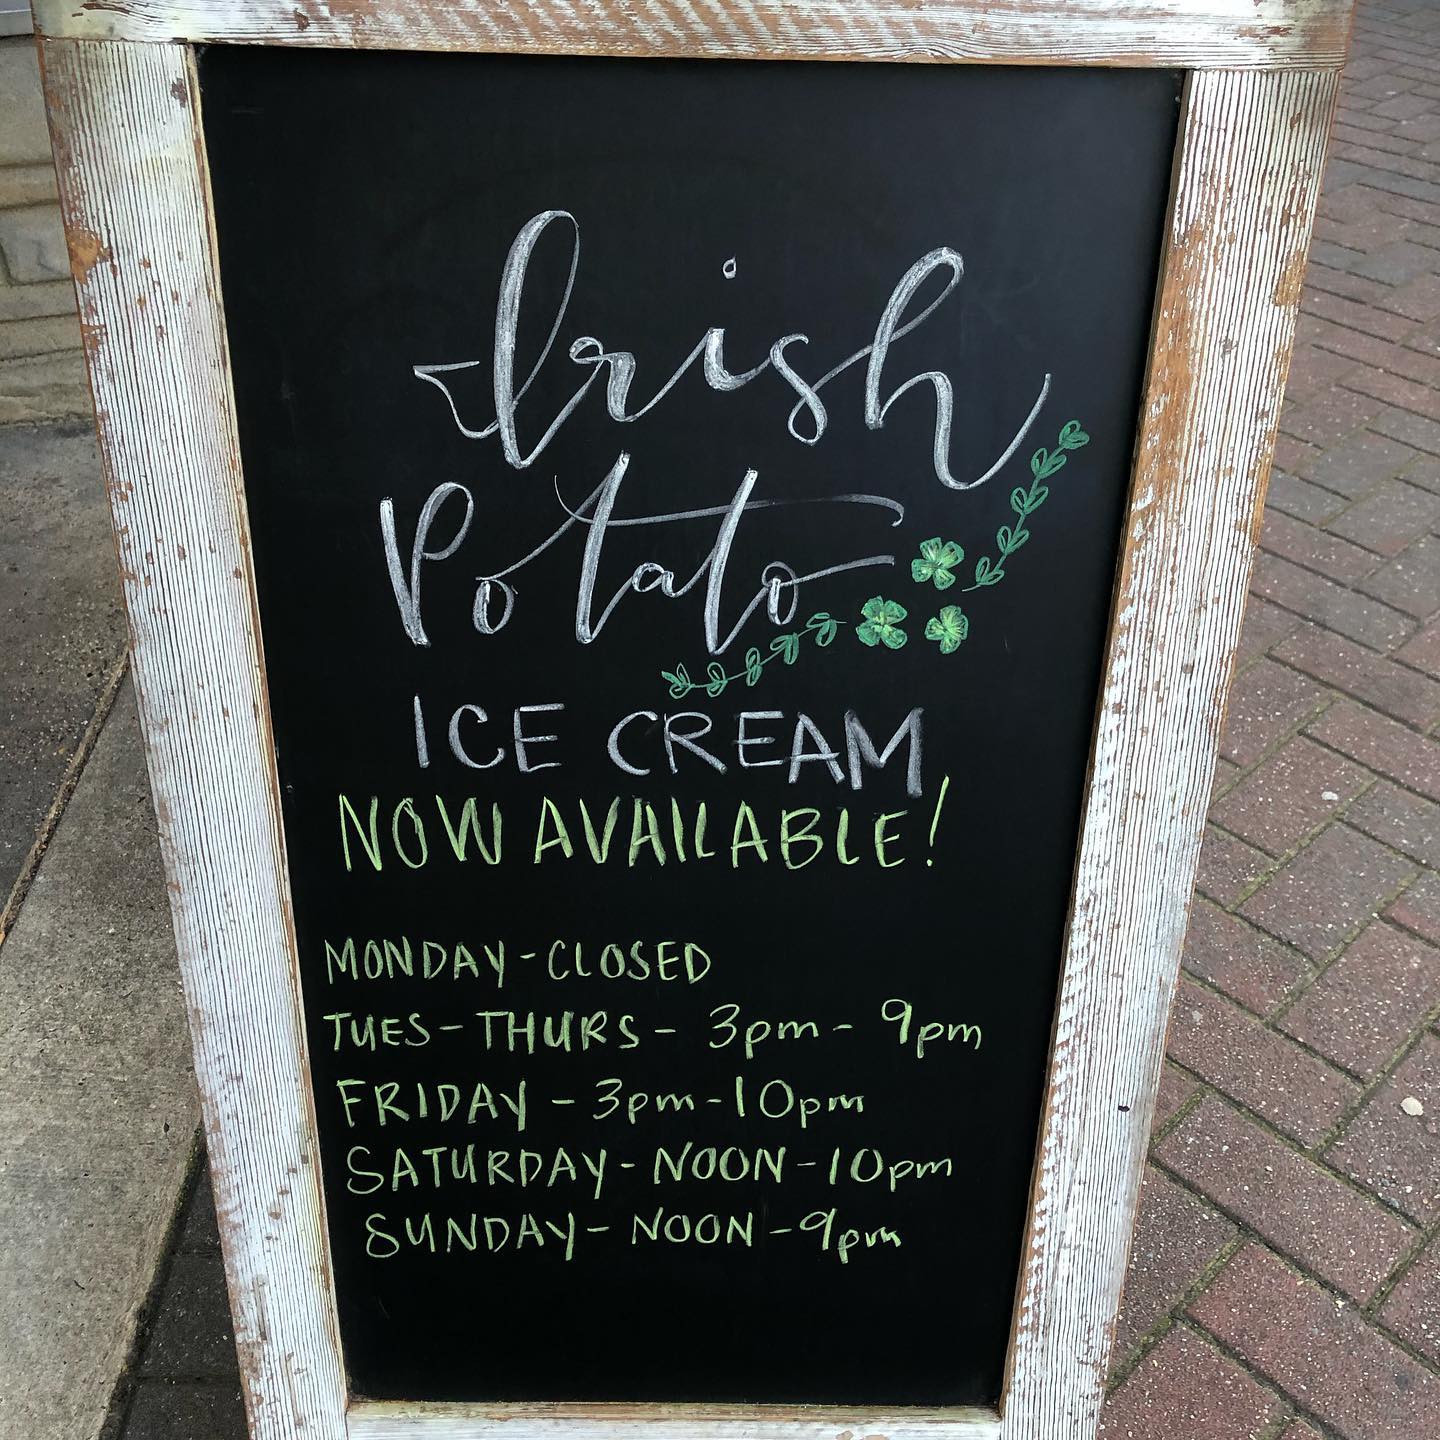 Irish
Potato
ICE CREAM
NOW AVAILABLE!
MONDAY - CLOSED
TUES - THURS - 3pm - 9pm
FRIDAY - 3pm - 10pm
SATURDAY - NOON - 10pm
SUNDAY - NOON - 9pm